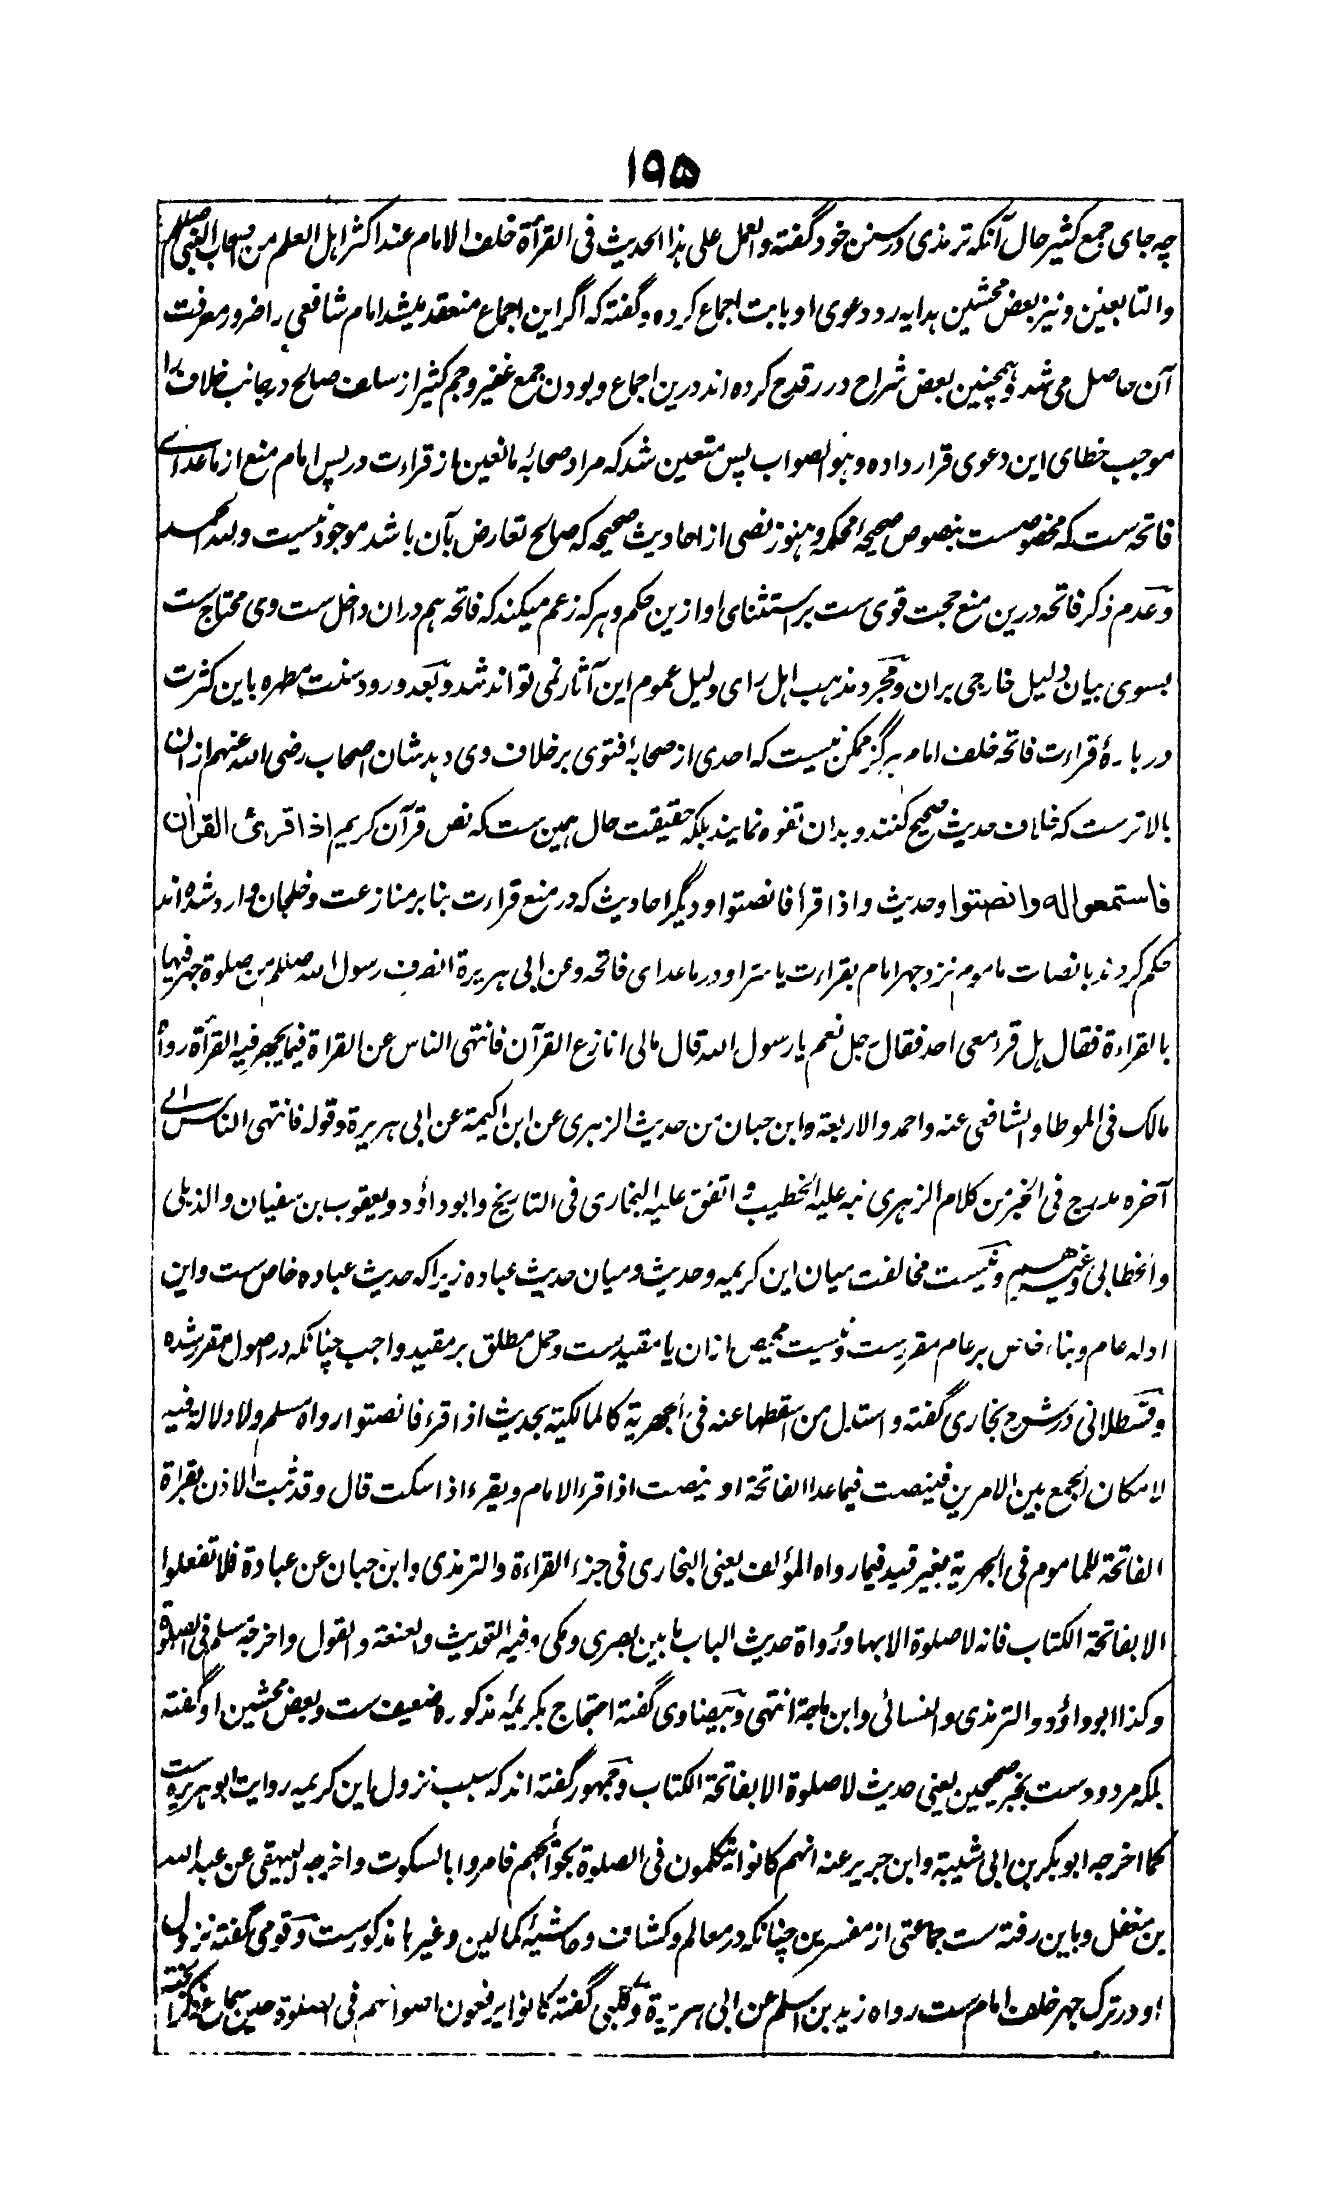 ۱۹۵
چه جای جمع کثیر حال آنکه ترمذی در سنن خود گفته والعمل علی هذا الحدیث فی القرأة خلف الامام عند اکثر اهل العلم من اصحاب النبی صلعم
والتابعین و نیز بعض محشین هدایه رد دعوی او بابت اجماع کرده و گفته که اگر این اجماع منعقد میشد امام شافعی را ضرور معرفت
آن حاصل می شد و همچنین بعض شراح در رد قدح کرده اند درین اجماع و بودن جمع غفیر و جم کثیر از سلف صالح در جانب خلاف را
موجب خطای این دعوی قرار داده و هو الصواب پس متعین شد که مراد صحابهٔ مانعین از قراءت در پس امام منع از ماعدای
فاتحه ست که مخصوص ست بنصوص صحیحهٔ محکمه و هنوز نصی از احادیث صحیحه که صالح تعارض بآن باشد موجود نیست ولله الحمد
و عدم ذکر فاتحه درین منع حجت قوی ست بر استثنای او ازین حکم و هر که زعم میکند که فاتحه هم دران داخل ست وی محتاج ست
بسوی بیان دلیل خارجی بران و مجرد مذهب اهل رای دلیل عموم این آثار نمی تواند شد و بعد ورود سنت مطهره باین کثرت
دربارهٔ قراءت فاتحه خلف امام هرگز ممکن نیست که احدی از صحابهٔ فتوی بر خلاف وی دهد شان اصحاب رضی الله عنهم ازان
بالاتر ست که خلاف حدیث صحیح کنند و بدان تفوه نمایند بلکه حقیقت حال همین ست که نص قرآن کریم اذا قرئ القرآن
فاستمعوا له وانصتوا و حدیث و اذا قرأ فانصتوا و دیگر احادیث که در منع قراءت بنا بر منازعت و خلجان وارد شده اند
حکم کردند بانصات ماموم نزد جهر امام بقراءت یا سترا و در ماعدای فاتحه و عن ابی هریرة انصرف رسول الله صلعم من صلوة جهر فیها
بالقراءة فقال هل قرأ معی احد فقال رجل نعم یا رسول الله قال مالی انازع القرآن فانتهی الناس عن القراة فیما یجهر فیه القرأة رواه
مالک فی الموطا والشافعی عنه واحمد والاربعة وابن حبان من حدیث الزهری عن ابن اکیمة عن ابی هریرة وقوله فانتهی الناس الی
آخره مدرج فی الخبر من کلام الزهری نبه علیه الخطیب و اتفق علیه البخاری فی التاریخ وابوداؤد و یعقوب بن سفیان والذهلی
والخطابی وغیرهم و نیست مخالفت میان این کریمه و حدیث و میان حدیث عباده زیرا که حدیث عباده خاص ست و این
ادله عام و بناء خاص بر عام مقرر ست و نیست محیص ازان یا مقید ست و حمل مطلق بر مقید واجب چنانکه در اصول مقرر شده
و قسطلانی در شرح بخاری گفته و استدل من اسقطها عنه فی الجهریة کالمالکیة بحدیث اذا قرء فانصتوا رواه مسلم ولا دلالة فیه
لامکان الجمع بین الامرین فینصت فیما عدا الفاتحة او ینصت اذا قرء الامام ویقرء اذا سکت قال وقد ثبت الاذن بقراة
الفاتحة للماموم فی الجهریة بغیر قید فیما رواه المؤلف یعنی البخاری فی جزء القراءة والترمذی وابن حبان عن عبادة فلا تفعلوا
الا بفاتحة الکتاب فانه لا صلوة الا بها ورواة حدیث الباب ما بین بصری ومکی وفیه التحدیث والعنعنة والقول واخرجه مسلم فی الصلوة
وکذا ابوداؤد والترمذی والنسائی وابن ماجة انتهی و بیضاوی گفته احتجاج بکریمهٔ مذکوره ضعیف ست و بعض محشین او گفته
بلکه مردود ست بخبر صحیحین یعنی حدیث لا صلوة الا بفاتحة الکتاب و جمهور گفته اند که سبب نزول این کریمه روایت ابوهریره ست
کما اخرجه ابوبکر بن ابی شیبة وابن جریر عنه انهم کانوا یتکلمون فی الصلوة بحوائجهم فامروا بالسکوت واخرجه البیهقی عن عبدالله
بن مغفل و باین رفته ست جماعتی از مفسرین چنانکه در معالم و کشاف و حاشیهٔ کمالین و غیرها مذکور ست و قومی گفته نزول
او در ترک جهر خلف امام ست رواه زید بن اسلم عن ابی هریرة و کلبی گفته کانوا یرفعون اصواتهم فی الصلوة حین سماع ذکر الجنة